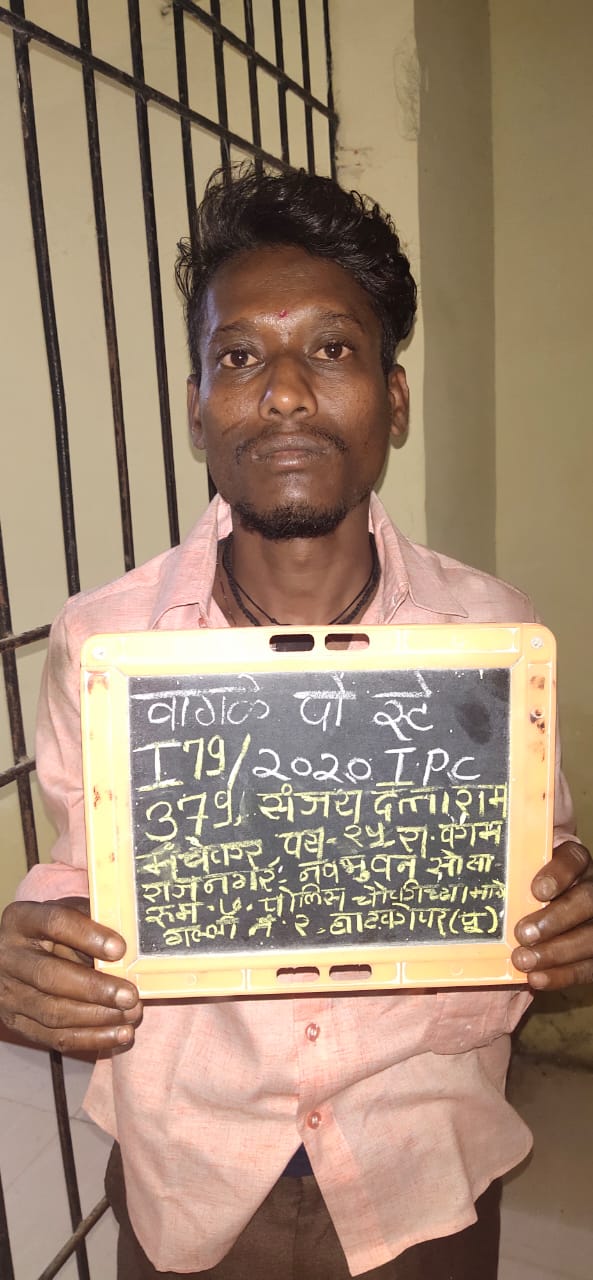 वागळे पो स्टे
I 79/२०२० I.P.C
379, संजय दत्ताराम
वय- २५ रा.
राजनगर. नवभुवन
रुम. ५. पोलिस चौकीच्या मागे
गल्ली नं. २. घाटकोपर (पू)